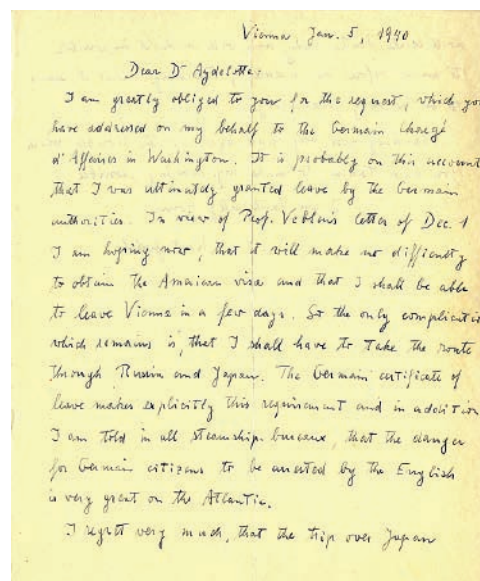 Vienna Jan. 5, 1940
Dear Dr Aydelotte:
I am greatly obliged to you for the request, which you
have addressed on my behalf to the German Chargé
d'Affaires in Washington. It is probably on this account
that I was ultimately granted leave by the German
authorities. In view of Prof. Veblen's letter of Dec. 1
I am hoping now, that it will make no difficulty
to obtain the American visa and that I shall be able
to leave Vienna in a few days. So the only complicatio
which remains is, that I shall have to take the route
through Russia and Japan. The German certificate of
leave makes explicitly this requirement and in addition
I am told in all steamship-bureaux, that the danger
for German citizens to be arrested by the English
is very great on the Atlantic.
I regret very much, that the trip over Japan